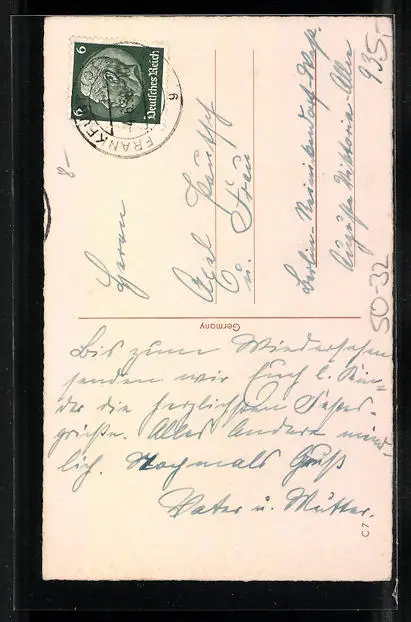 6 Deutsches Reich 6
FRANKFU
Herrn
u. Frau
Berlin-Reinickendorf-
Auguste Viktoria-Allee
Germany
Bis zum Wiedersehen
senden wir Euch l. Kin-
der die herzlichsten Festes-
grüße. Alles Andere münd-
lich. Nochmals Gruß
Vater u. Mutter.
C7
8-
935,-
SO-32